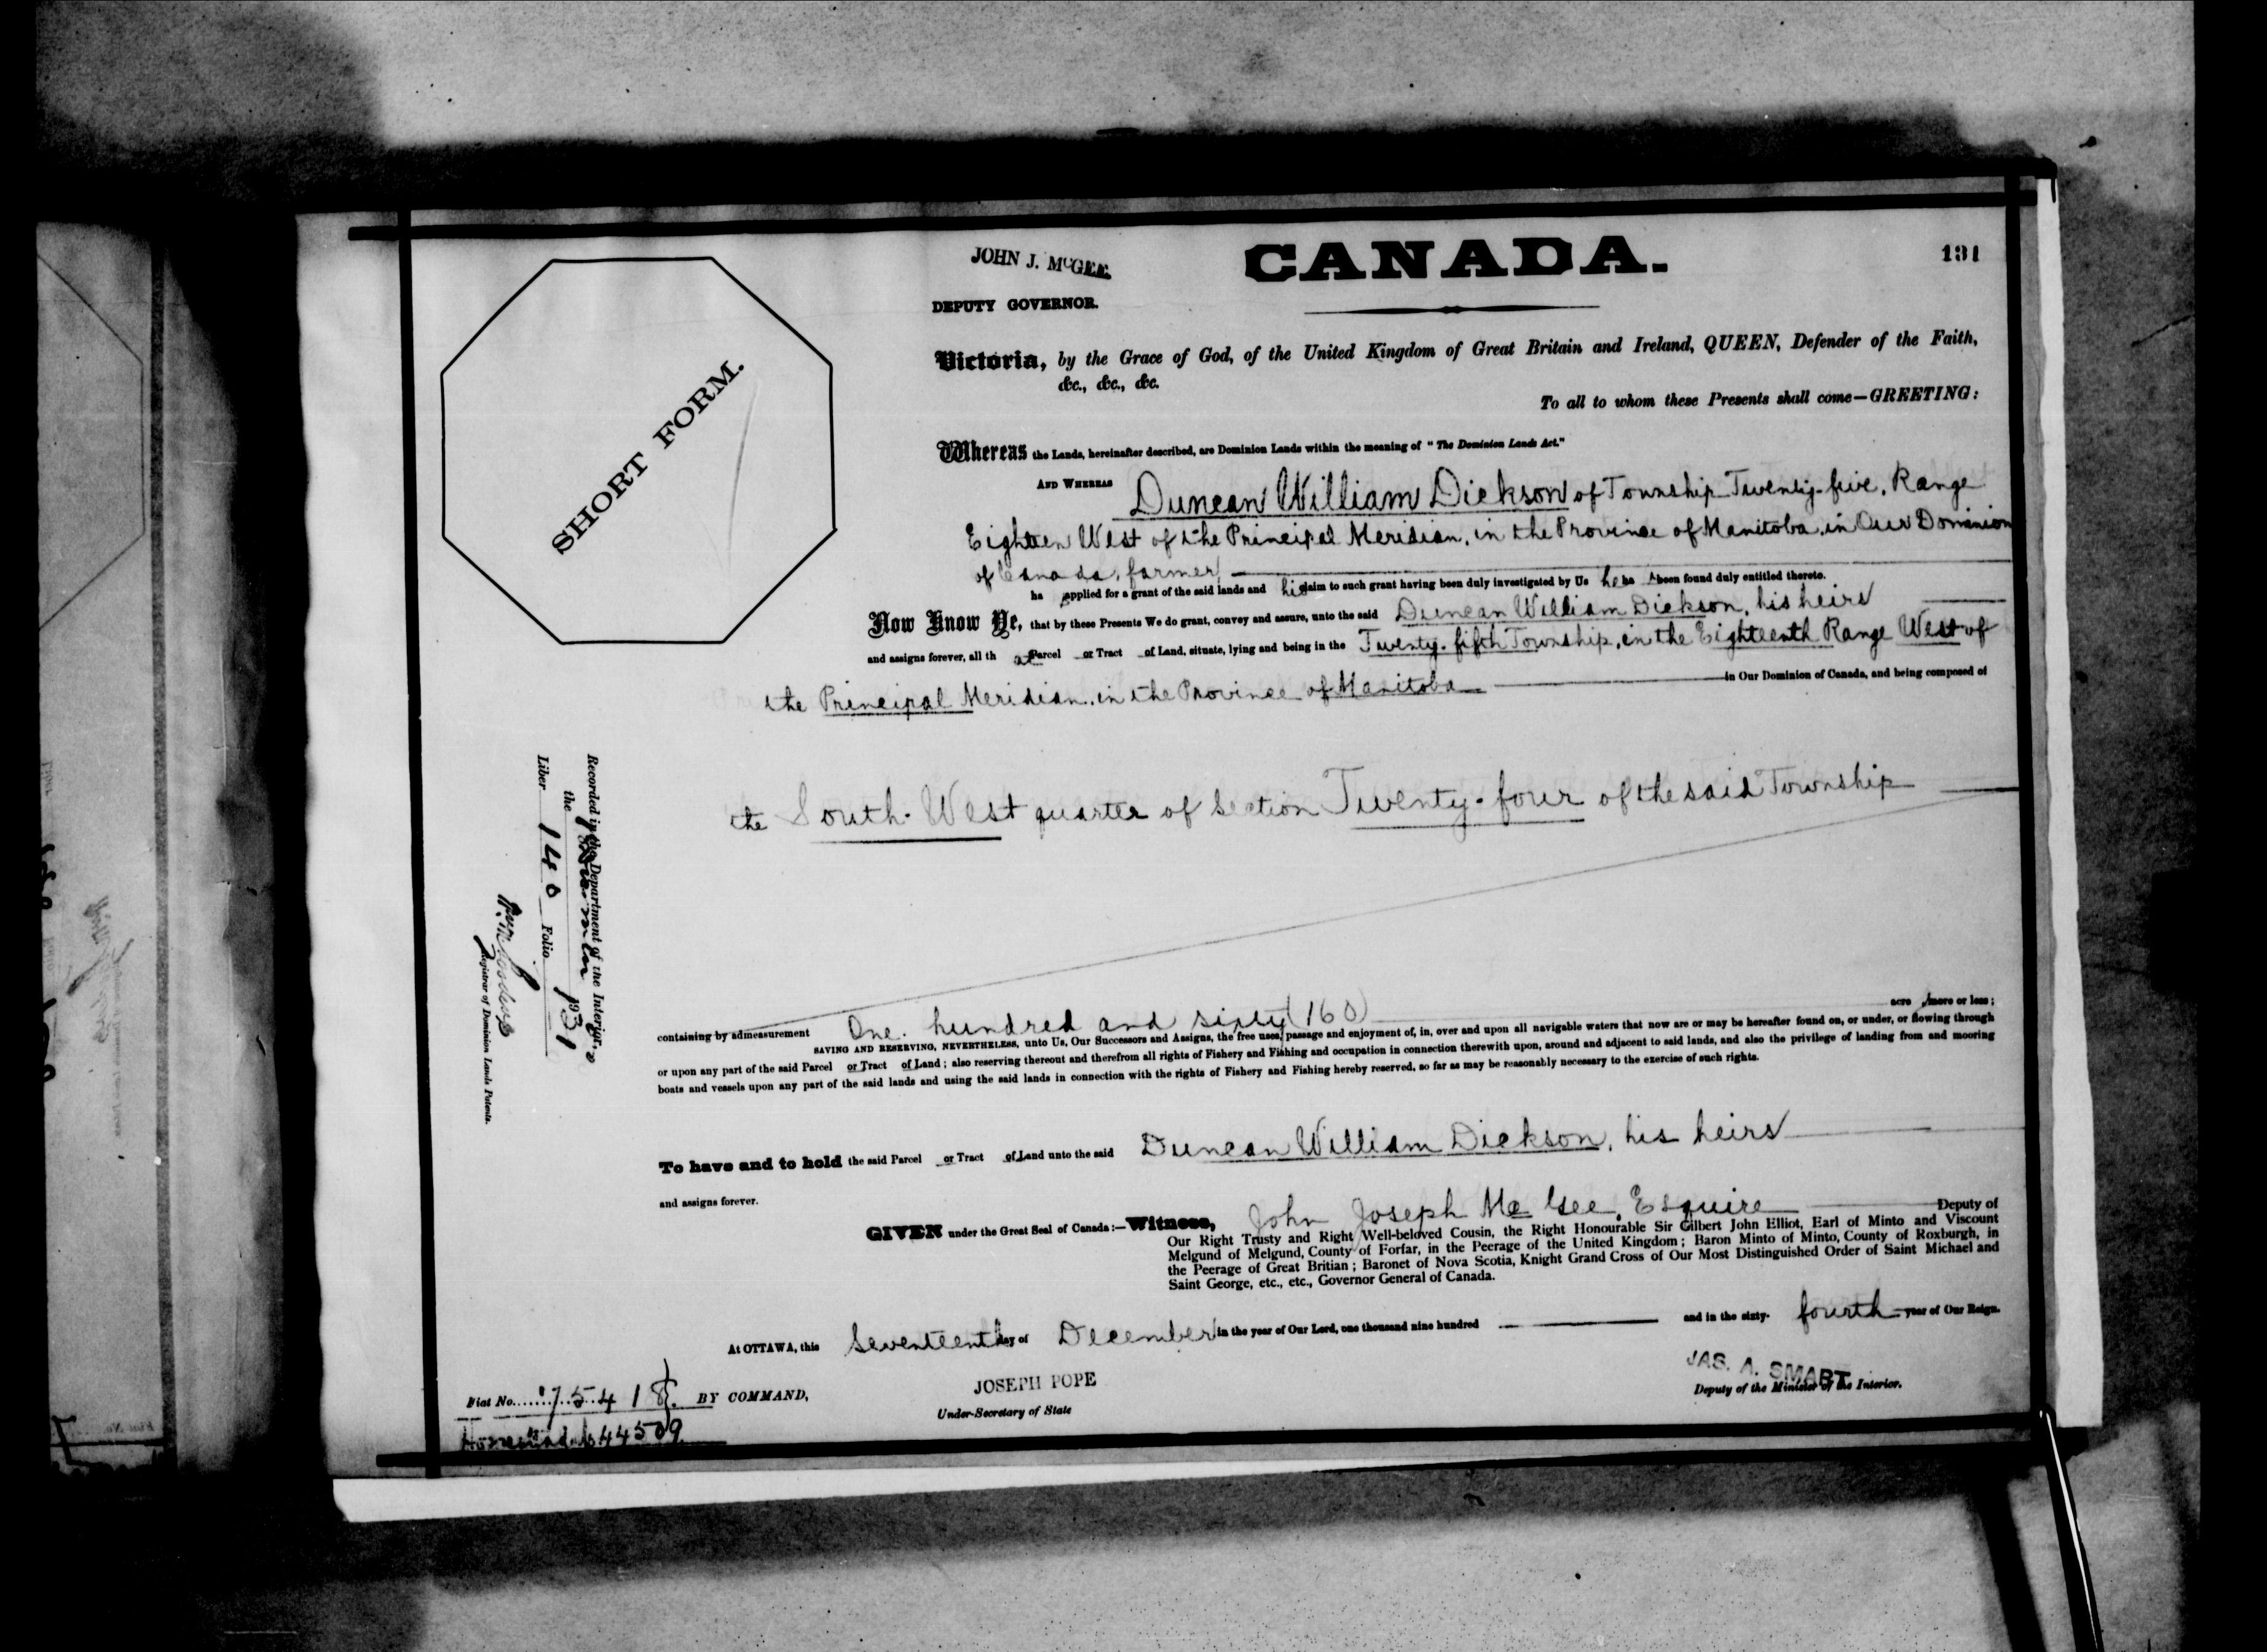 JOHN J. McGEE
DEPUTY GOVERNOR.
CANADA.
131
SHORT FORM.
Victoria, by the Grace of God, of the United Kingdom of Great Britain and Ireland, QUEEN, Defender of the Faith,
&c., &c., &c.
To all to whom these Presents shall come—GREETING:
Whereas the Lands, hereinafter described, are Dominion Lands within the meaning of "The Dominion Lands Act."
AND WHEREAS Duncan William Dickson of Township Twenty-five, Range
Eighteen West of the Principal Meridian, in the Province of Manitoba, in Our Dominion
of Canada, farmer
ha applied for a grant of the said lands and his claim to such grant having been duly investigated by Us he ha been found duly entitled thereto.
Now Know Ye, that by these Presents We do grant, convey and assure, unto the said Duncan William Dickson, his heirs
and assigns forever, all that Parcel or Tract of Land, situate, lying and being in the Twenty-fifth Township, in the Eighteenth Range West of
the Principal Meridian, in the Province of Manitoba in Our Dominion of Canada, and being composed of
the South-West quarter of Section Twenty-four of the said Township
containing by admeasurement One hundred and sixty (160) acre more or less;
SAVING AND RESERVING, NEVERTHELESS, unto Us, Our Successors and Assigns, the free uses, passage and enjoyment of, in, over and upon all navigable waters that now are or may be hereafter found on, or under, or flowing through
or upon any part of the said Parcel or Tract of Land; also reserving thereout and therefrom all rights of Fishery and Fishing and occupation in connection therewith upon, around and adjacent to said lands, and also the privilege of landing from and mooring
boats and vessels upon any part of the said lands and using the said lands in connection with the rights of Fishery and Fishing hereby reserved, so far as may be reasonably necessary to the exercise of such rights.
To have and to hold the said Parcel or Tract of Land unto the said Duncan William Dickson, his heirs
and assigns forever.
GIVEN under the Great Seal of Canada:—Witness, John Joseph McGee, Esquire Deputy of
Our Right Trusty and Right Well-beloved Cousin, the Right Honourable Sir Gilbert John Elliot, Earl of Minto and Viscount
Melgund of Melgund, County of Forfar, in the Peerage of the United Kingdom; Baron Minto of Minto, County of Roxburgh, in
the Peerage of Great Britian; Baronet of Nova Scotia, Knight Grand Cross of Our Most Distinguished Order of Saint Michael and
Saint George, etc., etc., Governor General of Canada.
At OTTAWA, this Seventeenth day of December in the year of Our Lord, one thousand nine hundred and in the sixty- fourth year of Our Reign.
Fiat No. 75418. BY COMMAND,
JOSEPH POPE
Under-Secretary of State
JAS. A. SMART
Deputy of the Minister of the Interior.
Homestead 644509
Recorded in the Department of the Interior,
the
Liber 140 Folio 131
Registrar of Dominion Lands Patents.